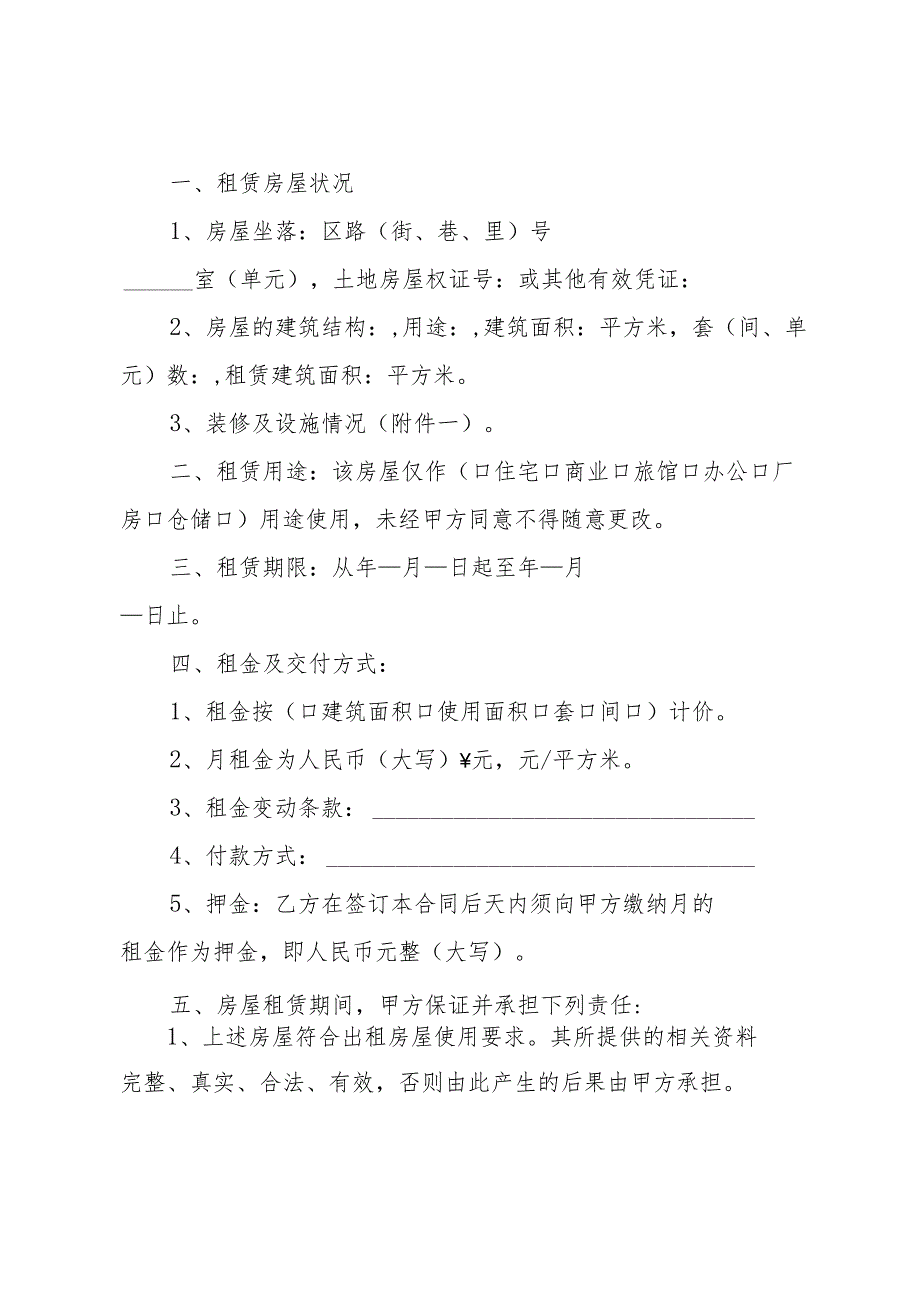 一、租赁房屋状况
1、房屋坐落：区路（街、巷、里）号
______室（单元），土地房屋权证号：或其他有效凭证：
2、房屋的建筑结构：,用途：,建筑面积：平方米，套（间、单
元）数：,租赁建筑面积：平方米。
3、装修及设施情况（附件一）。
二、租赁用途：该房屋仅作（口住宅口商业口旅馆口办公口厂
房口仓储口）用途使用，未经甲方同意不得随意更改。
三、租赁期限：从年—月—日起至年—月
—日止。
四、租金及交付方式：
1、租金按（口建筑面积口使用面积口套口间口）计价。
2、月租金为人民币（大写）¥元，元/平方米。
3、租金变动条款：_________________________________
4、付款方式：_____________________________________
5、押金：乙方在签订本合同后天内须向甲方缴纳月的
租金作为押金，即人民币元整（大写）。
五、房屋租赁期间，甲方保证并承担下列责任:
1、上述房屋符合出租房屋使用要求。其所提供的相关资料
完整、真实、合法、有效，否则由此产生的后果由甲方承担。